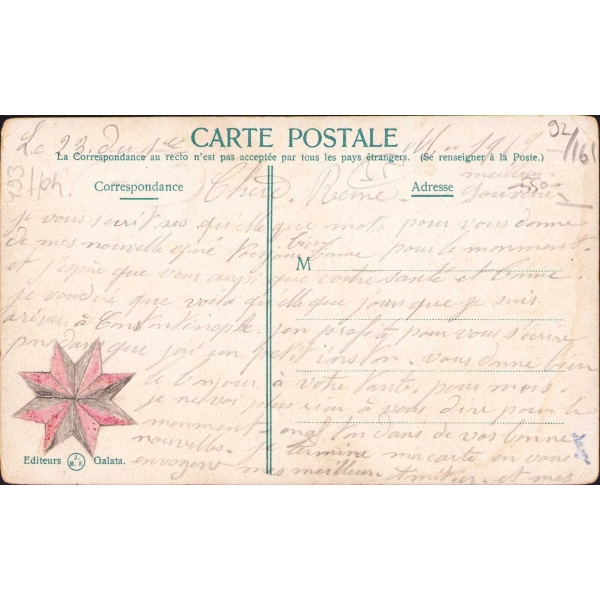 92/161
CARTE POSTALE
Le 23
La Correspondance au recto n'est pas acceptée par tous les pays étrangers. (Se renseigner à la Poste.)
Correspondance
Adresse
Chère Reine
meilleur
Souvenir
je vous écrit ses quelle que mots pour vous donne
de mes nouvelle qui toujours bonne pour le monment.
M
et j'espère que vous ausi que votre santé et bonne
je voudré que voila quelle que jours que je suis
à Constantinople. pour vous s'écrire
pendans que j'ai un petit instan. vous donne bien
le bonjour à votre tante. pour mois.
je ne voi plus rien à vous dire pour le
monment dans de vos bonne
nouvelles. Je termine ma carte en vous
envoyent mes meilleur Amitier. et mes
Editeurs J.M.F. Galata.